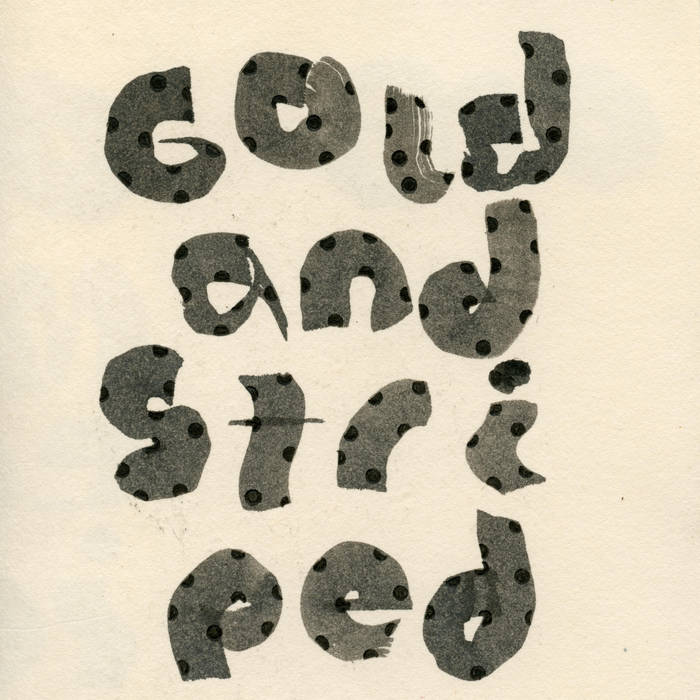 Gold
and
Stri
ped